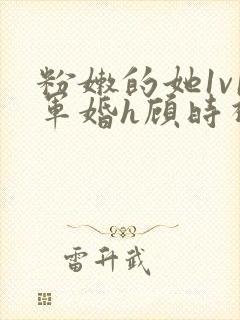 粉嫩的她1v1
军婚h顾时
雷升武